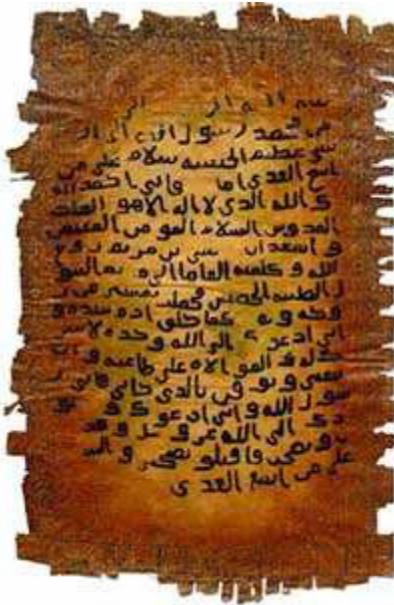 بسم الله الر الر
من محمد رسول الله الى الـ
شى عظيم الحبسه سلام على من
اتبع الهدى اما فانى احمد الـ
ك الله الذى لا اله الا هو الملك
القدوس السلام المومن المهيمن
و اشهد ان سى بن مريم روح
الله و كلمته القاها الى البتو
ل الطيبه الحصينه فحملت من ر
وحه و كما خلق ادم بيده و
انى ادعو الى الله وحده لا شر
يك له و الموالاه على طاعته و ان
تتبعنى و توقن بالذى جانى فانى ر
سول الله و انى ادعوك و
دك الى الله عز و جل و قد
و نصحت فاقبلو و الس
على من اتبع الهدى